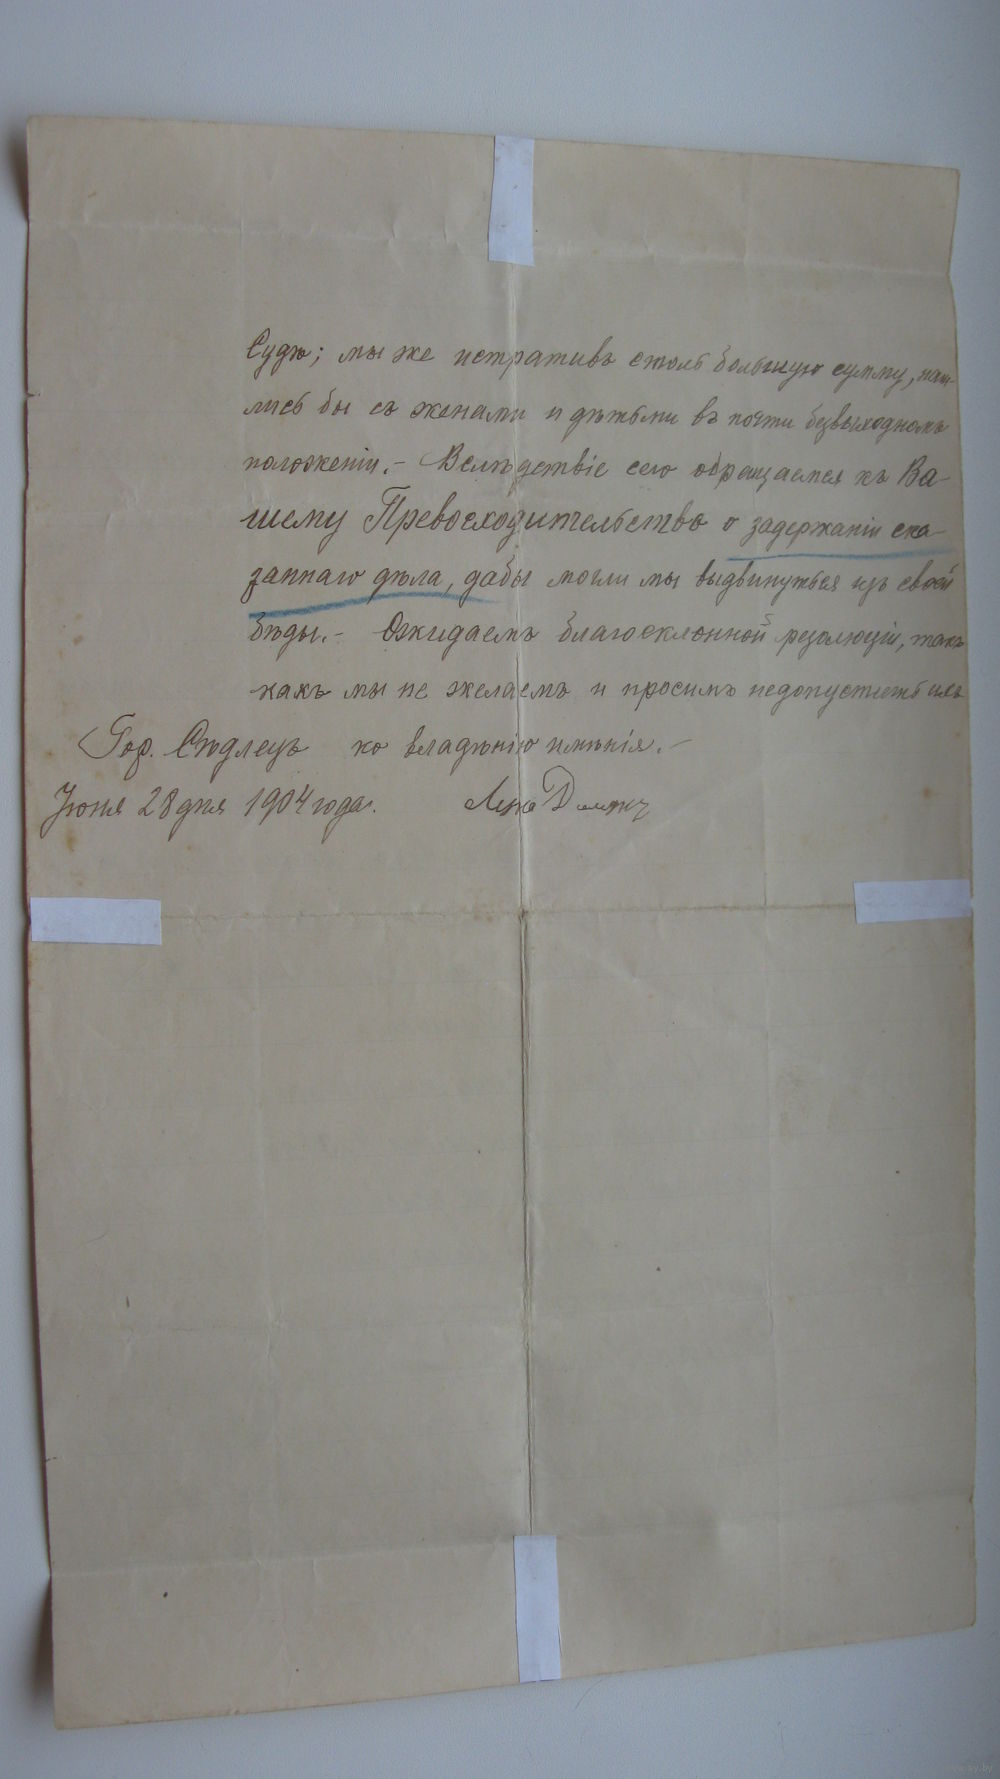 Судѣ; мы же истративъ столь большую сумму, наш-
лись бы съ женами и дѣтьми въ почти безвыходномъ
положеніи.- Вслѣдствіе сего обращаемся къ Ва-
шему Превосходительство о задержаніи ска-
заннаго дѣла, дабы могли мы выдвинуться изъ своей
бѣды.- Ожидаемъ благосклонной резолюціи, такъ
какъ мы не желаемъ и просимъ недопустить ихъ
Гор. Сѣдлецъ ко владѣнію имѣнія.-
Іюня 28 дня 1904 года.